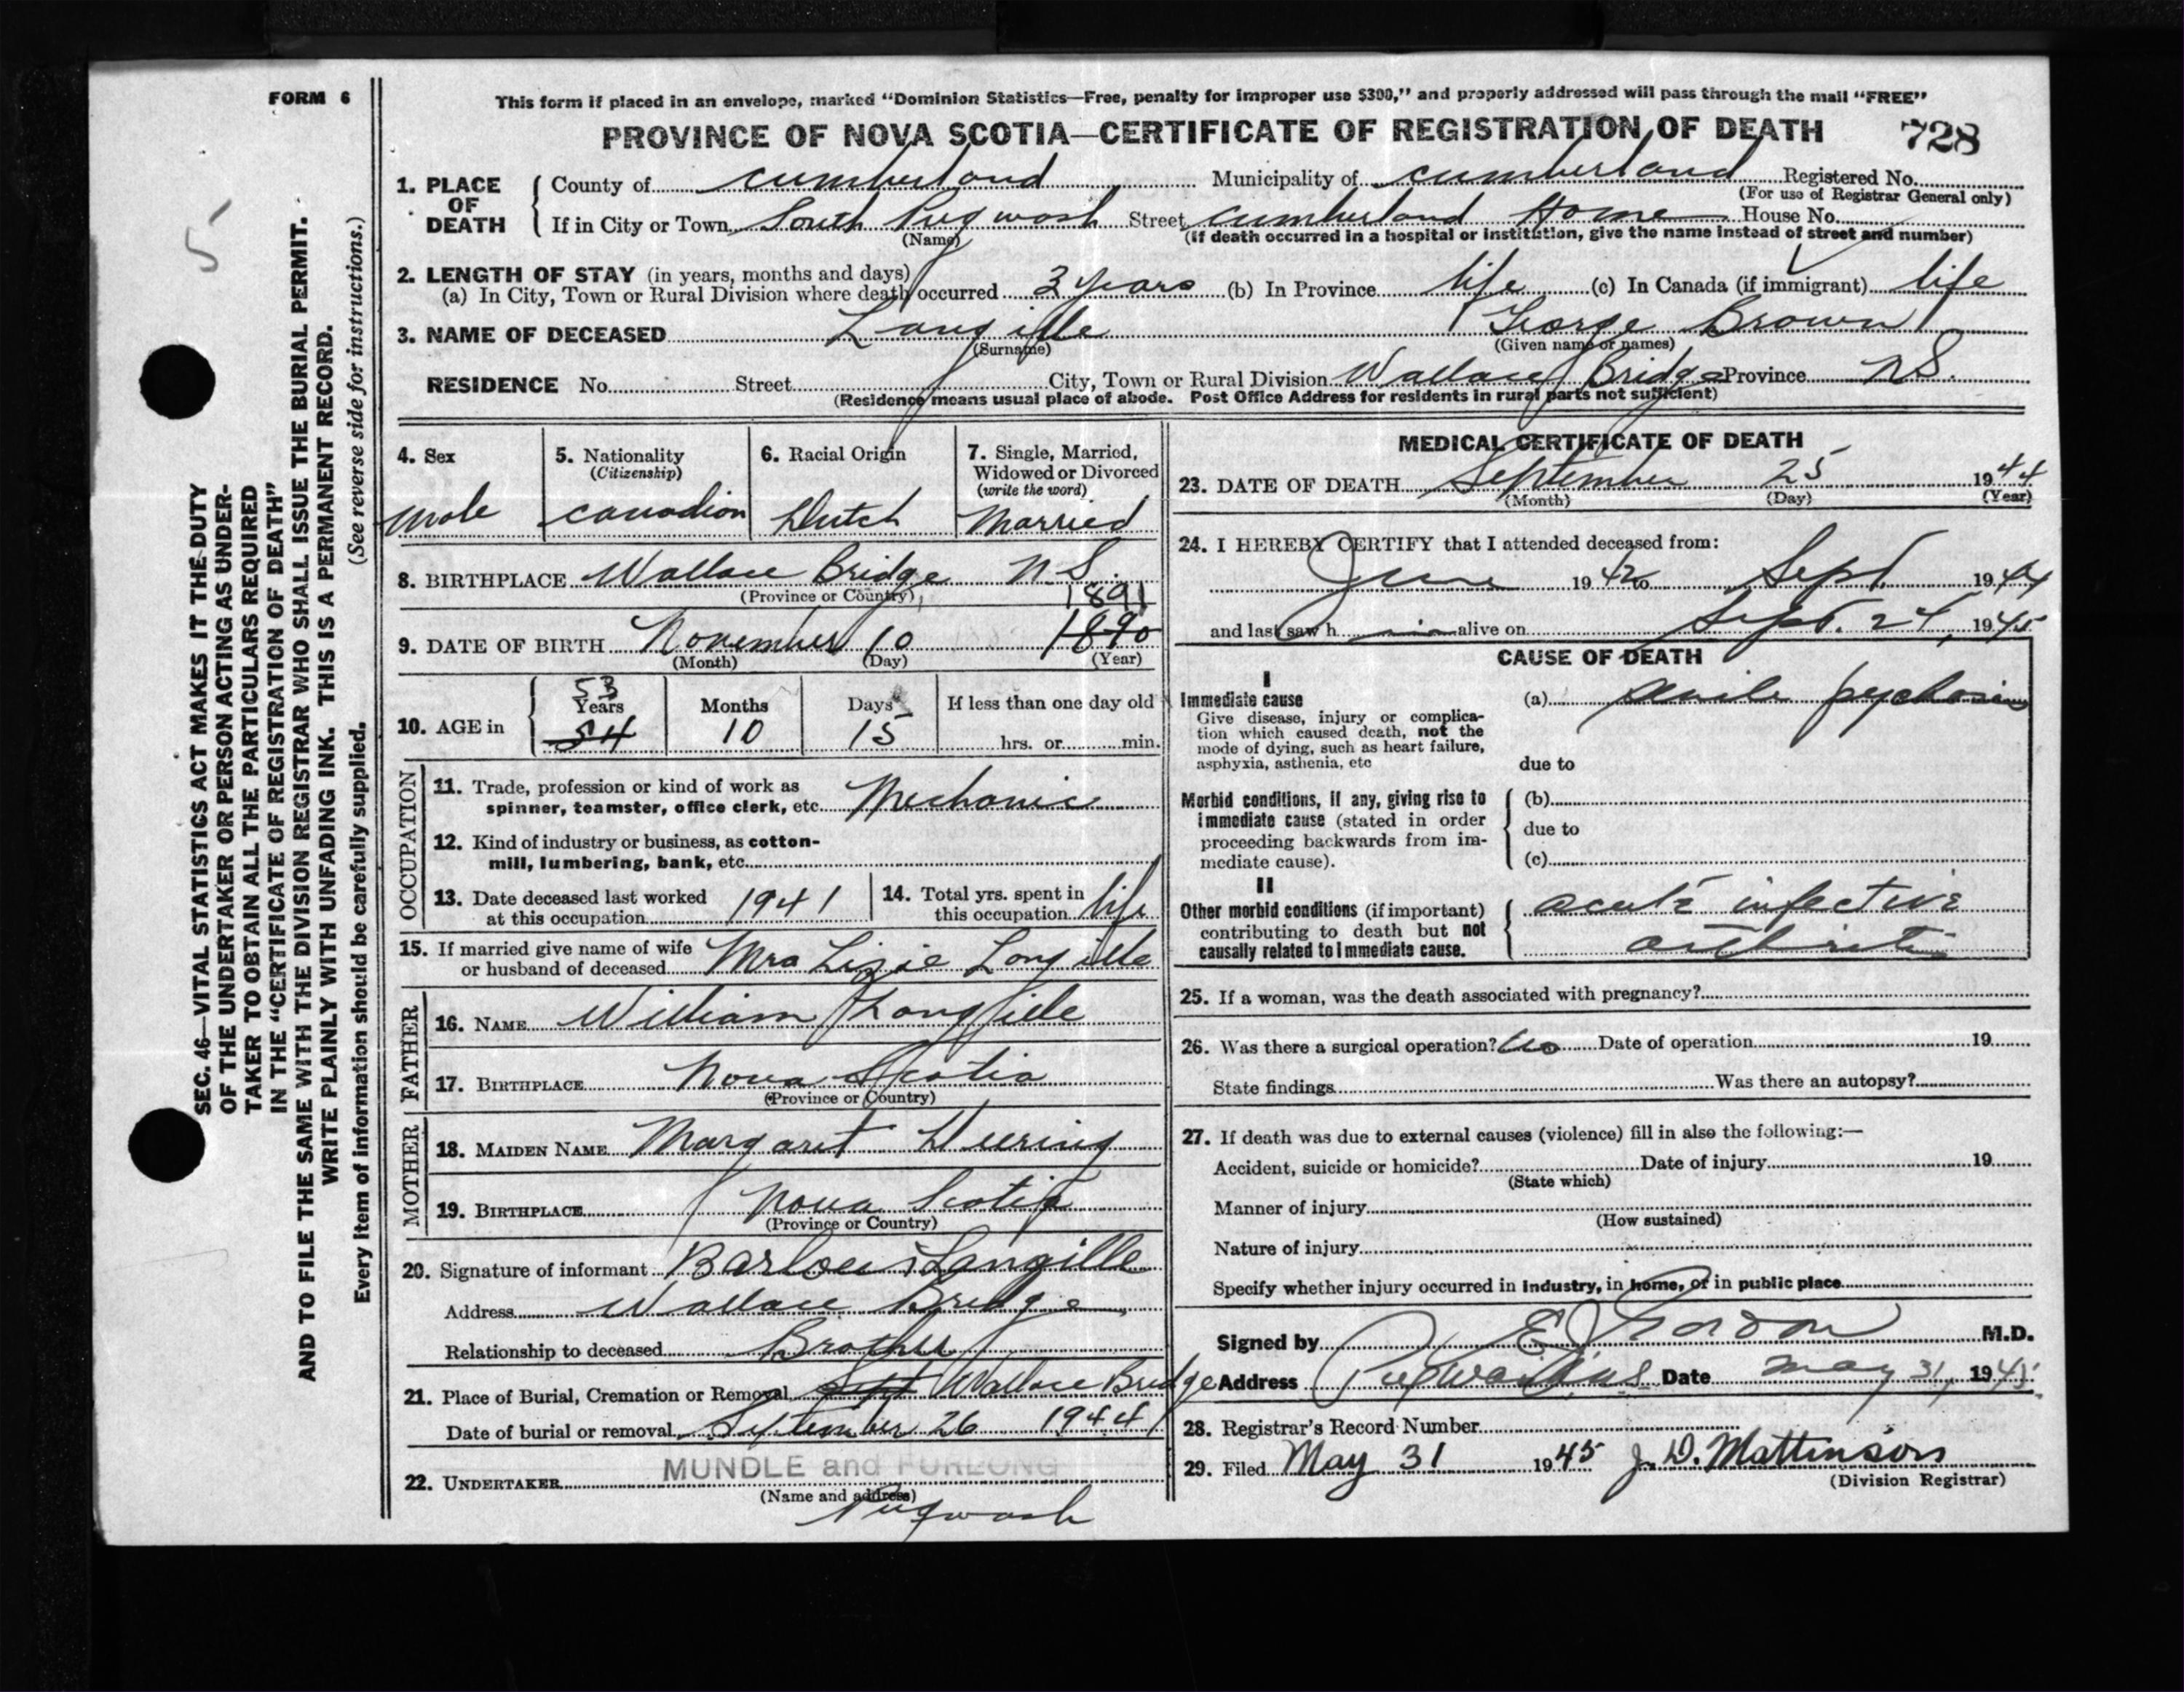 FORM 6
5
SEC. 46—VITAL STATISTICS ACT MAKES IT THE DUTY
OF THE UNDERTAKER OR PERSON ACTING AS UNDER-
TAKER TO OBTAIN ALL THE PARTICULARS REQUIRED
IN THE "CERTIFICATE OF REGISTRATION OF DEATH"
AND TO FILE THE SAME WITH THE DIVISION REGISTRAR WHO SHALL ISSUE THE BURIAL PERMIT.
WRITE PLAINLY WITH UNFADING INK. THIS IS A PERMANENT RECORD.
Every item of information should be carefully supplied. (See reverse side for instructions.)
This form if placed in an envelope, marked "Dominion Statistics—Free, penalty for improper use $300," and properly addressed will pass through the mail "FREE"
PROVINCE OF NOVA SCOTIA—CERTIFICATE OF REGISTRATION OF DEATH 728
1. PLACE OF DEATH
County of Cumberland Municipality of Cumberland Registered No.
(For use of Registrar General only)
If in City or Town South Pugwash Street Cumberland Home House No.
(Name) (If death occurred in a hospital or institution, give the name instead of street and number)
2. LENGTH OF STAY (in years, months and days)
(a) In City, Town or Rural Division where death occurred 3 years (b) In Province life (c) In Canada (if immigrant) life
3. NAME OF DECEASED Langille George Brown
(Surname) (Given name or names)
RESIDENCE No. Street City, Town or Rural Division Wallace Bridge Province N.S.
(Residence means usual place of abode. Post Office Address for residents in rural parts not sufficient)
4. Sex
Male
5. Nationality
(Citizenship)
Canadian
6. Racial Origin
Dutch
7. Single, Married,
Widowed or Divorced
(write the word)
Married
8. BIRTHPLACE Wallace Bridge N.S.
(Province or Country)
1891
9. DATE OF BIRTH November 10 1890
(Month) (Day) (Year)
10. AGE in
53
Years
54
Months
10
Days
15
If less than one day old
hrs. or min.
OCCUPATION
11. Trade, profession or kind of work as
spinner, teamster, office clerk, etc. Mechanic
12. Kind of industry or business, as cotton-
mill, lumbering, bank, etc.
13. Date deceased last worked
at this occupation 1941
14. Total yrs. spent in
this occupation life
15. If married give name of wife
or husband of deceased Mrs Lizie Langille
FATHER
16. NAME William Langille
17. BIRTHPLACE Nova Scotia
(Province or Country)
MOTHER
18. MAIDEN NAME Margaret
19. BIRTHPLACE Nova Scotia
(Province or Country)
20. Signature of informant Langille
Address Wallace Bridge
Relationship to deceased Brother
21. Place of Burial, Cremation or Removal Wallace Bridge
Date of burial or removal September 26 1944
22. UNDERTAKER MUNDLE and FURLONG
(Name and address)
Pugwash
MEDICAL CERTIFICATE OF DEATH
23. DATE OF DEATH September 25 1944
(Month) (Day) (Year)
24. I HEREBY CERTIFY that I attended deceased from:
June 1942 to Sept 1944
and last saw h im alive on Sept. 24, 1945
CAUSE OF DEATH
I
Immediate cause
Give disease, injury or complica-
tion which caused death, not the
mode of dying, such as heart failure,
asphyxia, asthenia, etc
(a) senile psychosis
due to
Morbid conditions, if any, giving rise to
immediate cause (stated in order
proceeding backwards from im-
mediate cause).
(b)
due to
(c)
II
Other morbid conditions (if important)
contributing to death but not
causally related to immediate cause.
acute infective
arthritis
25. If a woman, was the death associated with pregnancy?
26. Was there a surgical operation? No Date of operation 19
State findings Was there an autopsy?
27. If death was due to external causes (violence) fill in also the following:—
Accident, suicide or homicide? Date of injury 19
(State which)
Manner of injury
(How sustained)
Nature of injury
Specify whether injury occurred in industry, in home, or in public place
Signed by Gordon M.D.
Address Pugwash N.S. Date May 31, 1945
28. Registrar's Record Number
29. Filed May 31 1945 J. D. Mattinson
(Division Registrar)